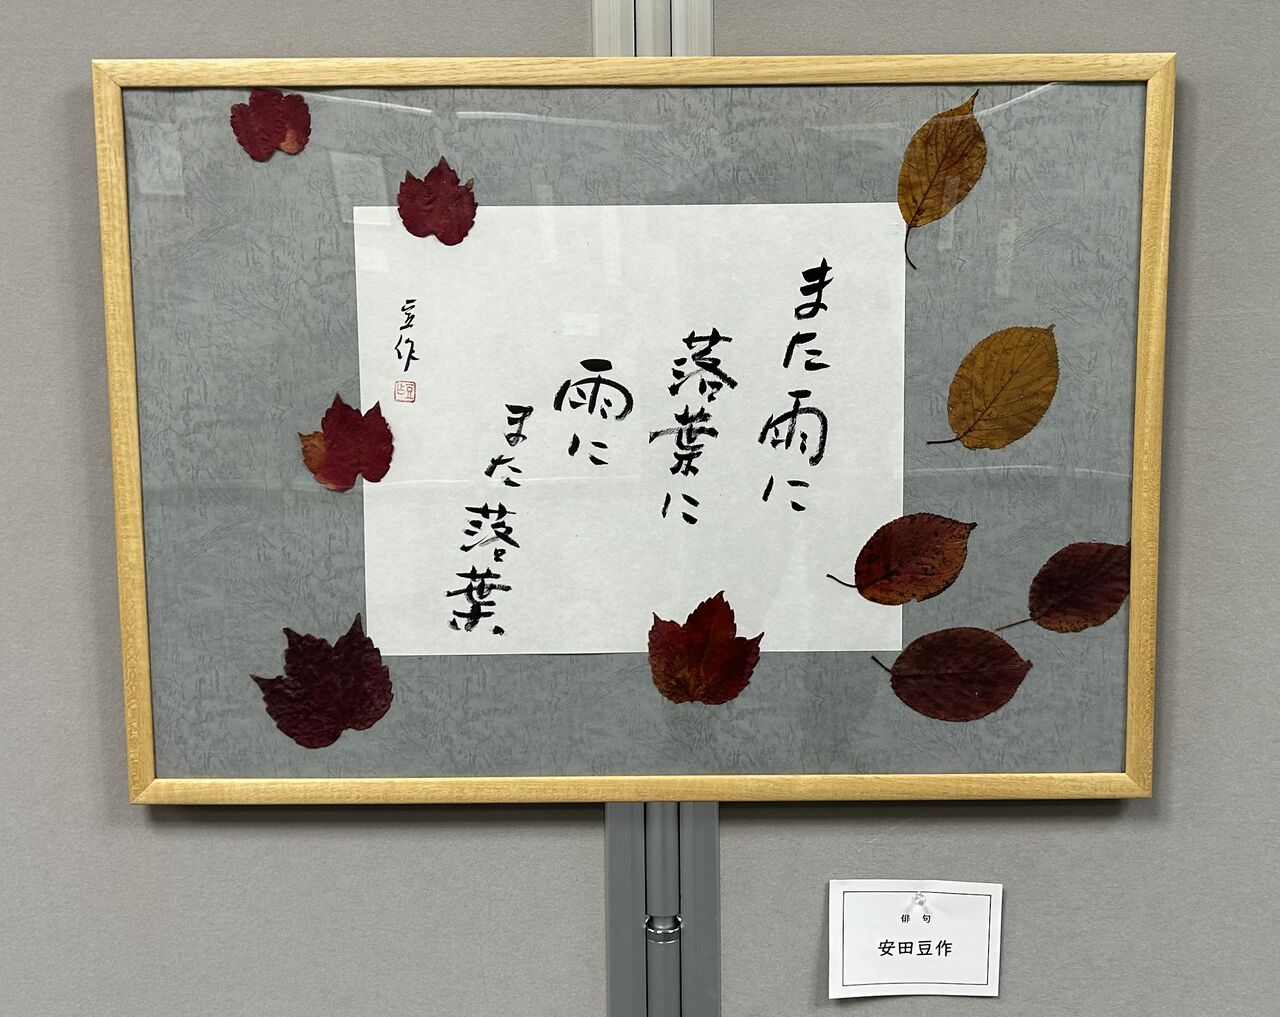 また雨に
落葉に
雨に
また落葉
豆作
俳句
安田豆作